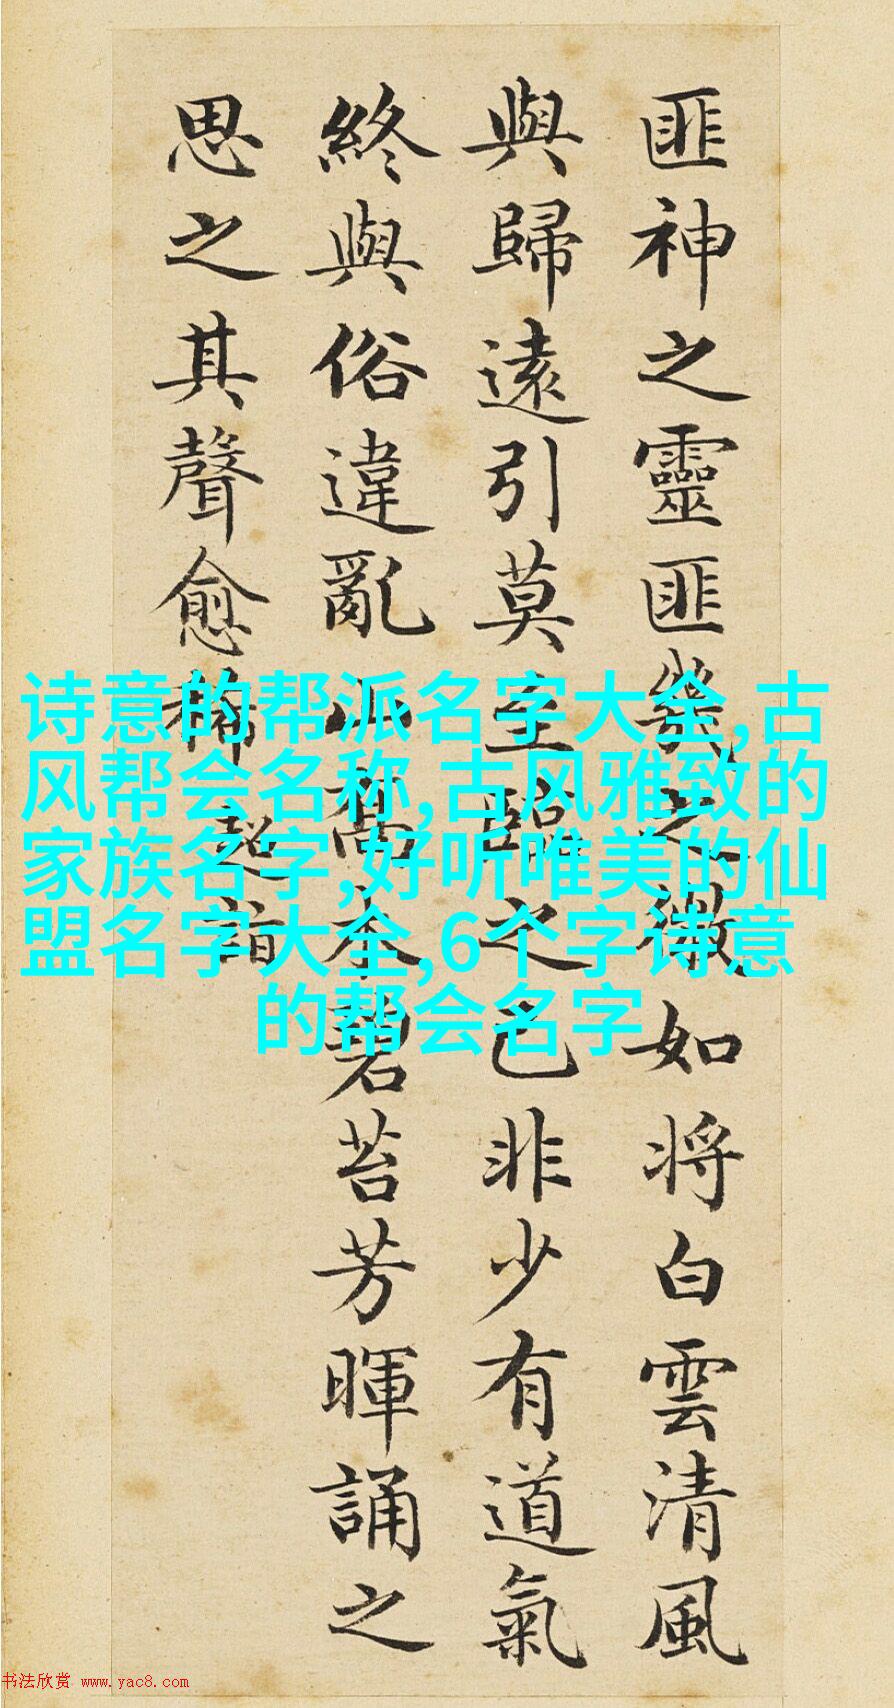 匪神之靈匪幾之微如將白雲清風
與歸遠引莫至臨之已非少有道氣
終與俗違亂山喬木碧苔芳暉誦之
思之其聲愈稀
超詣
诗意的帮派名字大全,古
风帮会名称,古风雅致的
家族名字,好听唯美的仙
盟名字大全,6个字诗意
的帮会名字
书法欣赏 www.yac8.com